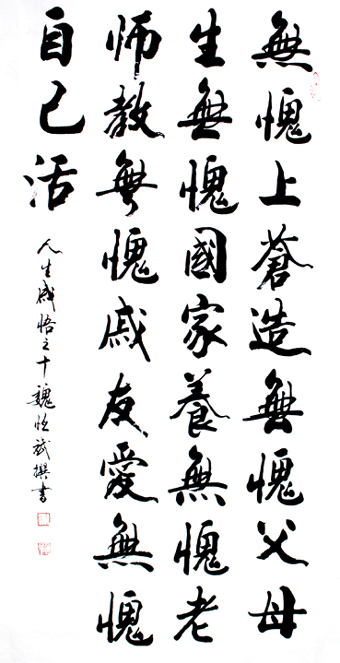 無愧上蒼造無愧父母
生無愧國家養無愧老
師教無愧戚友愛無愧
自己活
人生感悟之十魏恒斌撰書